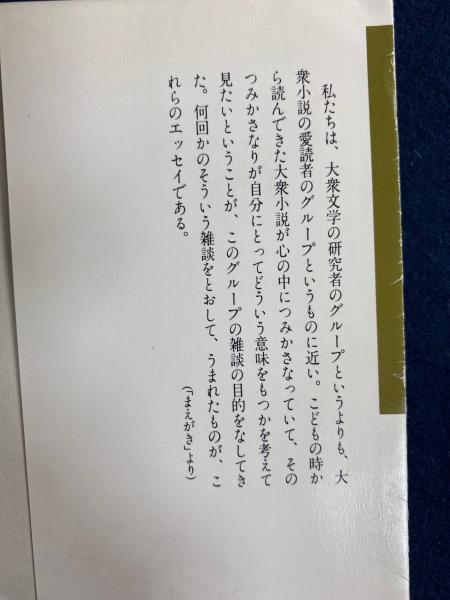 私たちは、大衆文学の研究者のグループというよりも、大
衆小説の愛読者のグループというものに近い。こどもの時か
ら読んできた大衆小説が心の中につみかさなっていて、その
つみかさなりが自分にとってどういう意味をもつかを考えて
見たいということが、このグループの雑談の目的をなしてき
た。何回かのそういう雑談をとおして、うまれたものが、こ
れらのエッセイである。
(「まえがき」より)